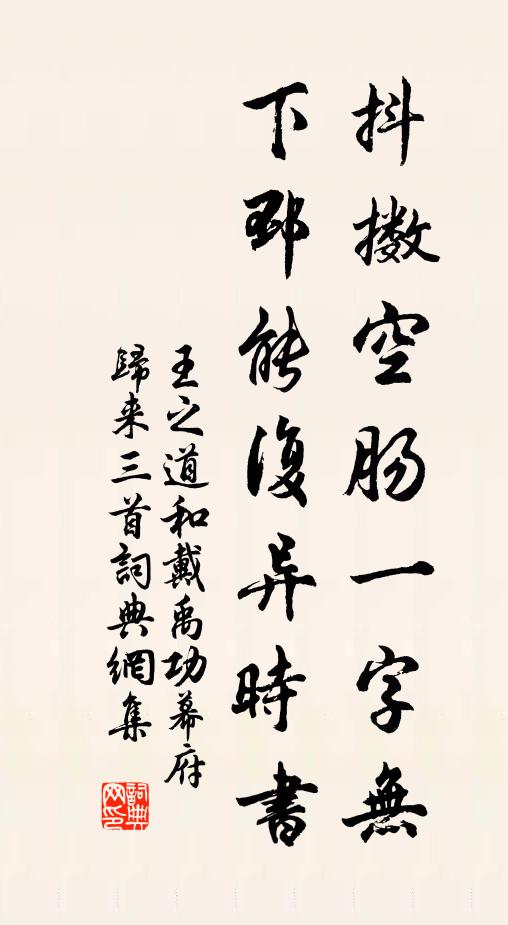 抖擻空肠一字無
下邳能復异時書
王之道和戴禹功幕府
歸来三首詞典網集
詞典网印